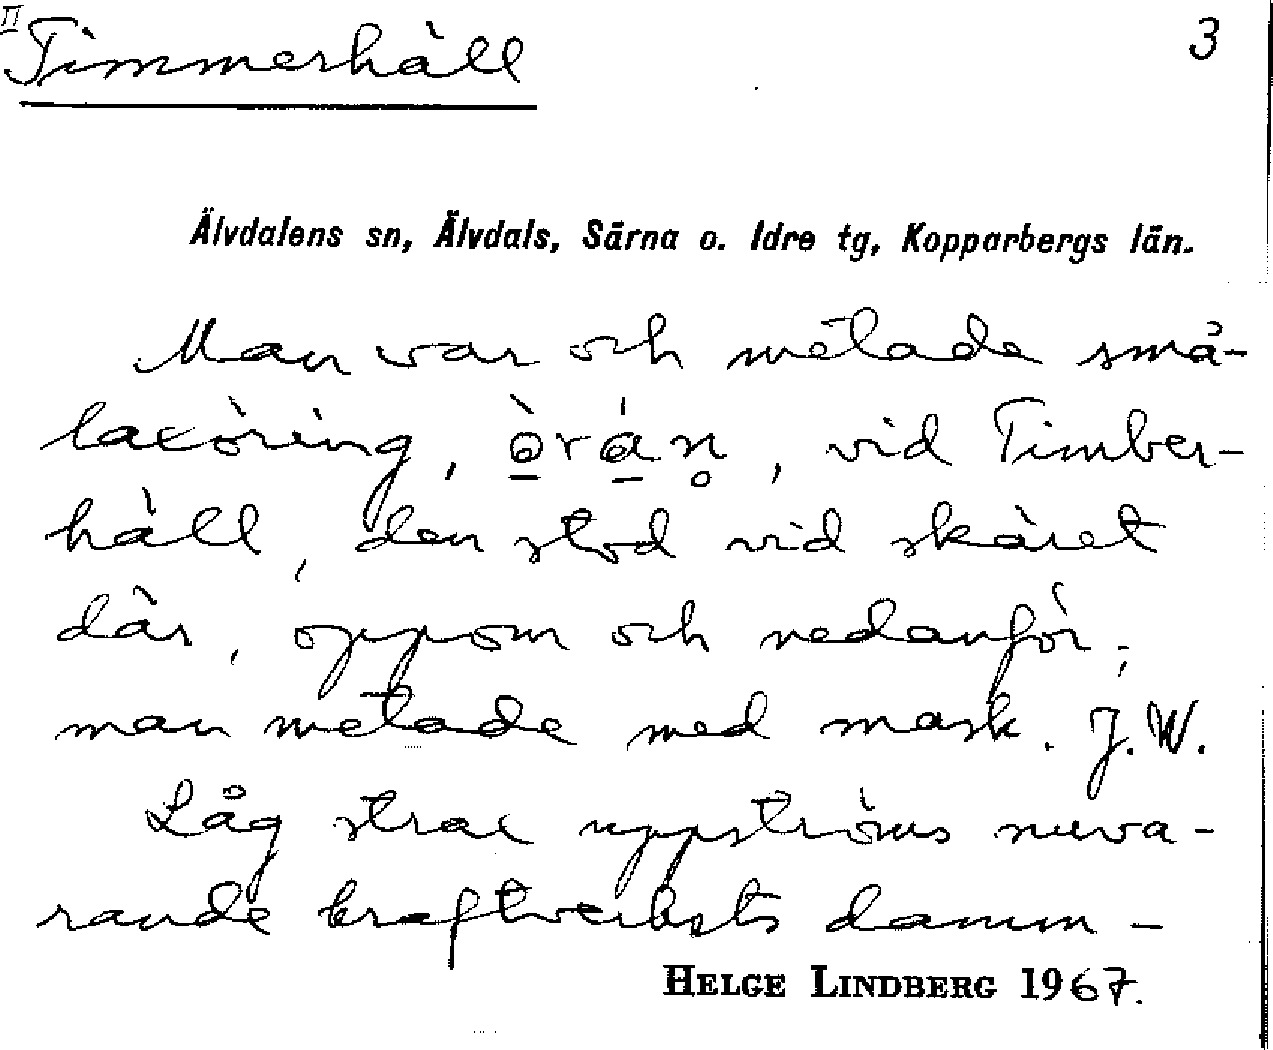 II
Timmerhäll 3
Älvdalens sn, Älvdals, Särna o. Idre tg, Kopparbergs län.
Man var och metade små-
laxöring, , vid Timber-
häll, den stod vid skäret
där, oppom och nedanför;
man metade med mask. J.W.
Låg strax uppströms nuva-
rande kraftverkets damm -
HELGE LINDBERG 1967.